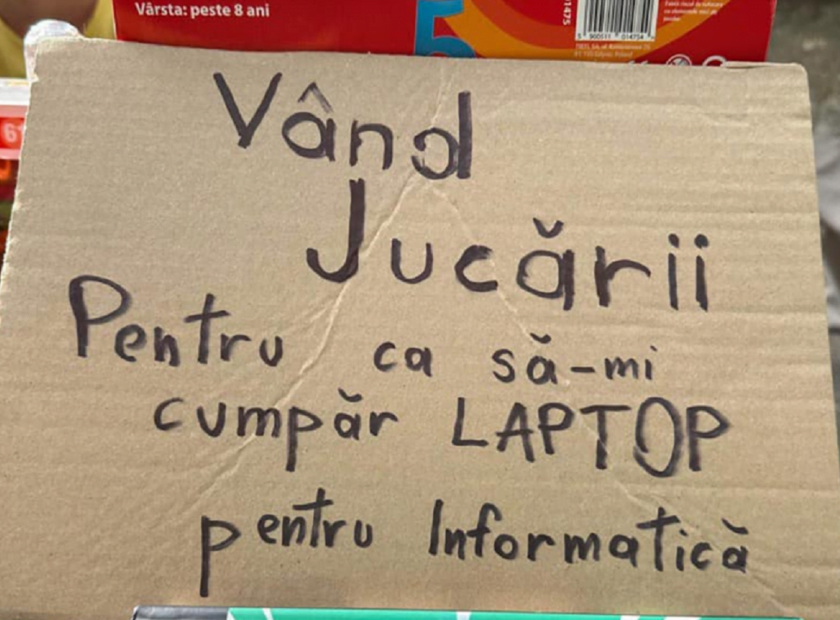 Vârsta: peste 8 ani
Vând
Jucării
Pentru ca să-mi
cumpăr LAPTOP
pentru Informatică